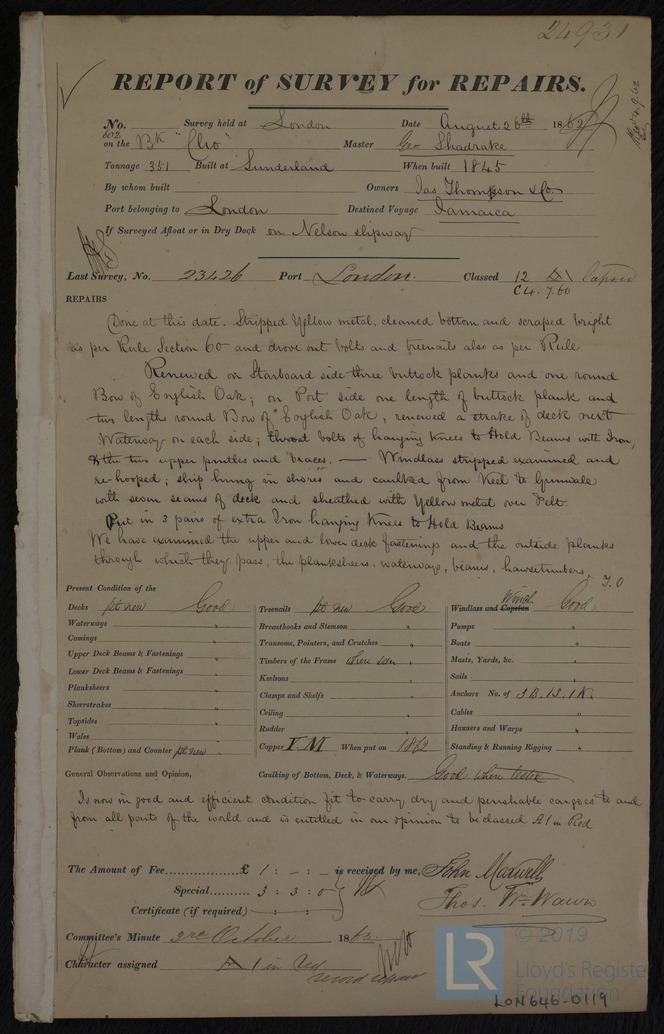 24931
REPORT of SURVEY for REPAIRS.
No. 602 Survey held at London Date August 26th 1862
on the Bk "Clio" Master Geo Shadrake
Tonnage 351 Built at Sunderland When built 1845
By whom built Owners Jas Thompson & Co.
Port belonging to London Destined Voyage Jamaica
If Surveyed Afloat or in Dry Dock on Nelson slipway
Last Survey, No. 23426 Port London. Classed 12 A1
C 4. 7. 60
REPAIRS
Done at this date. Stripped Yellow metal, cleaned bottom and scraped bright
as per Rule Section 60 and drove out bolts and treenails also as per Rule.
Renewed on Starboard side three buttock planks and one round
Bow of English Oak; on Port side one length of buttock plank and
two lengths round Bow of English Oak, renewed a strake of deck next
Waterway on each side; throat bolts of hanging Knees to Hold Beams with Iron,
& the two upper pintles and braces. — Windlass stripped examined and
re-hooped; ship hung in shores and caulked from Keel to Gunwale
with seven seams of deck and sheathed with Yellow metal over Felt.
Put in 3 pairs of extra Iron hanging Knees to Hold Beams
We have examined the upper and lower deck fastenings and the outside planks
through which they pass, the plansheers, waterways, beams, hawsetimbers,
T.O
Present Condition of the
Decks pt new Good Treenails pt new Good Windlass and Capstan Winch Good
Waterways " Breasthooks and Stemson " Pumps "
Comings " Transoms, Pointers, and Crutches " Boats "
Upper Deck Beams & Fastenings " Timbers of the Frame where seen " Masts, Yards, &c. "
Lower Deck Beams & Fastenings " Keelsons " Sails "
Planksheers " Clamps and Shelfs " Anchors No. of 3 B. 1 S. 1 K.
Sheerstrakes " Ceiling " Cables "
Topsides " Rudder " Hawsers and Warps "
Wales " Copper Y M When put on 1862 Standing & Running Rigging "
Plank (Bottom) and Counter pt new "
General Observations and Opinion, Caulking of Bottom, Deck, & Waterways. Good when tested
Is now in good and efficient condition fit to carry dry and perishable cargoes to and
from all parts of the world and is entitled in our opinion to be classed A1 in Red
The Amount of Fee £ 1 : - : - is received by me, John Maxwell
Special 3 : 3 : 0
Thos. Wm Wawn
Certificate (if required)
Committee's Minute 3rd October 1862
Character assigned A 1 in Red
© 2019
LR
Lloyd's Register
Foundation
LON646-0119